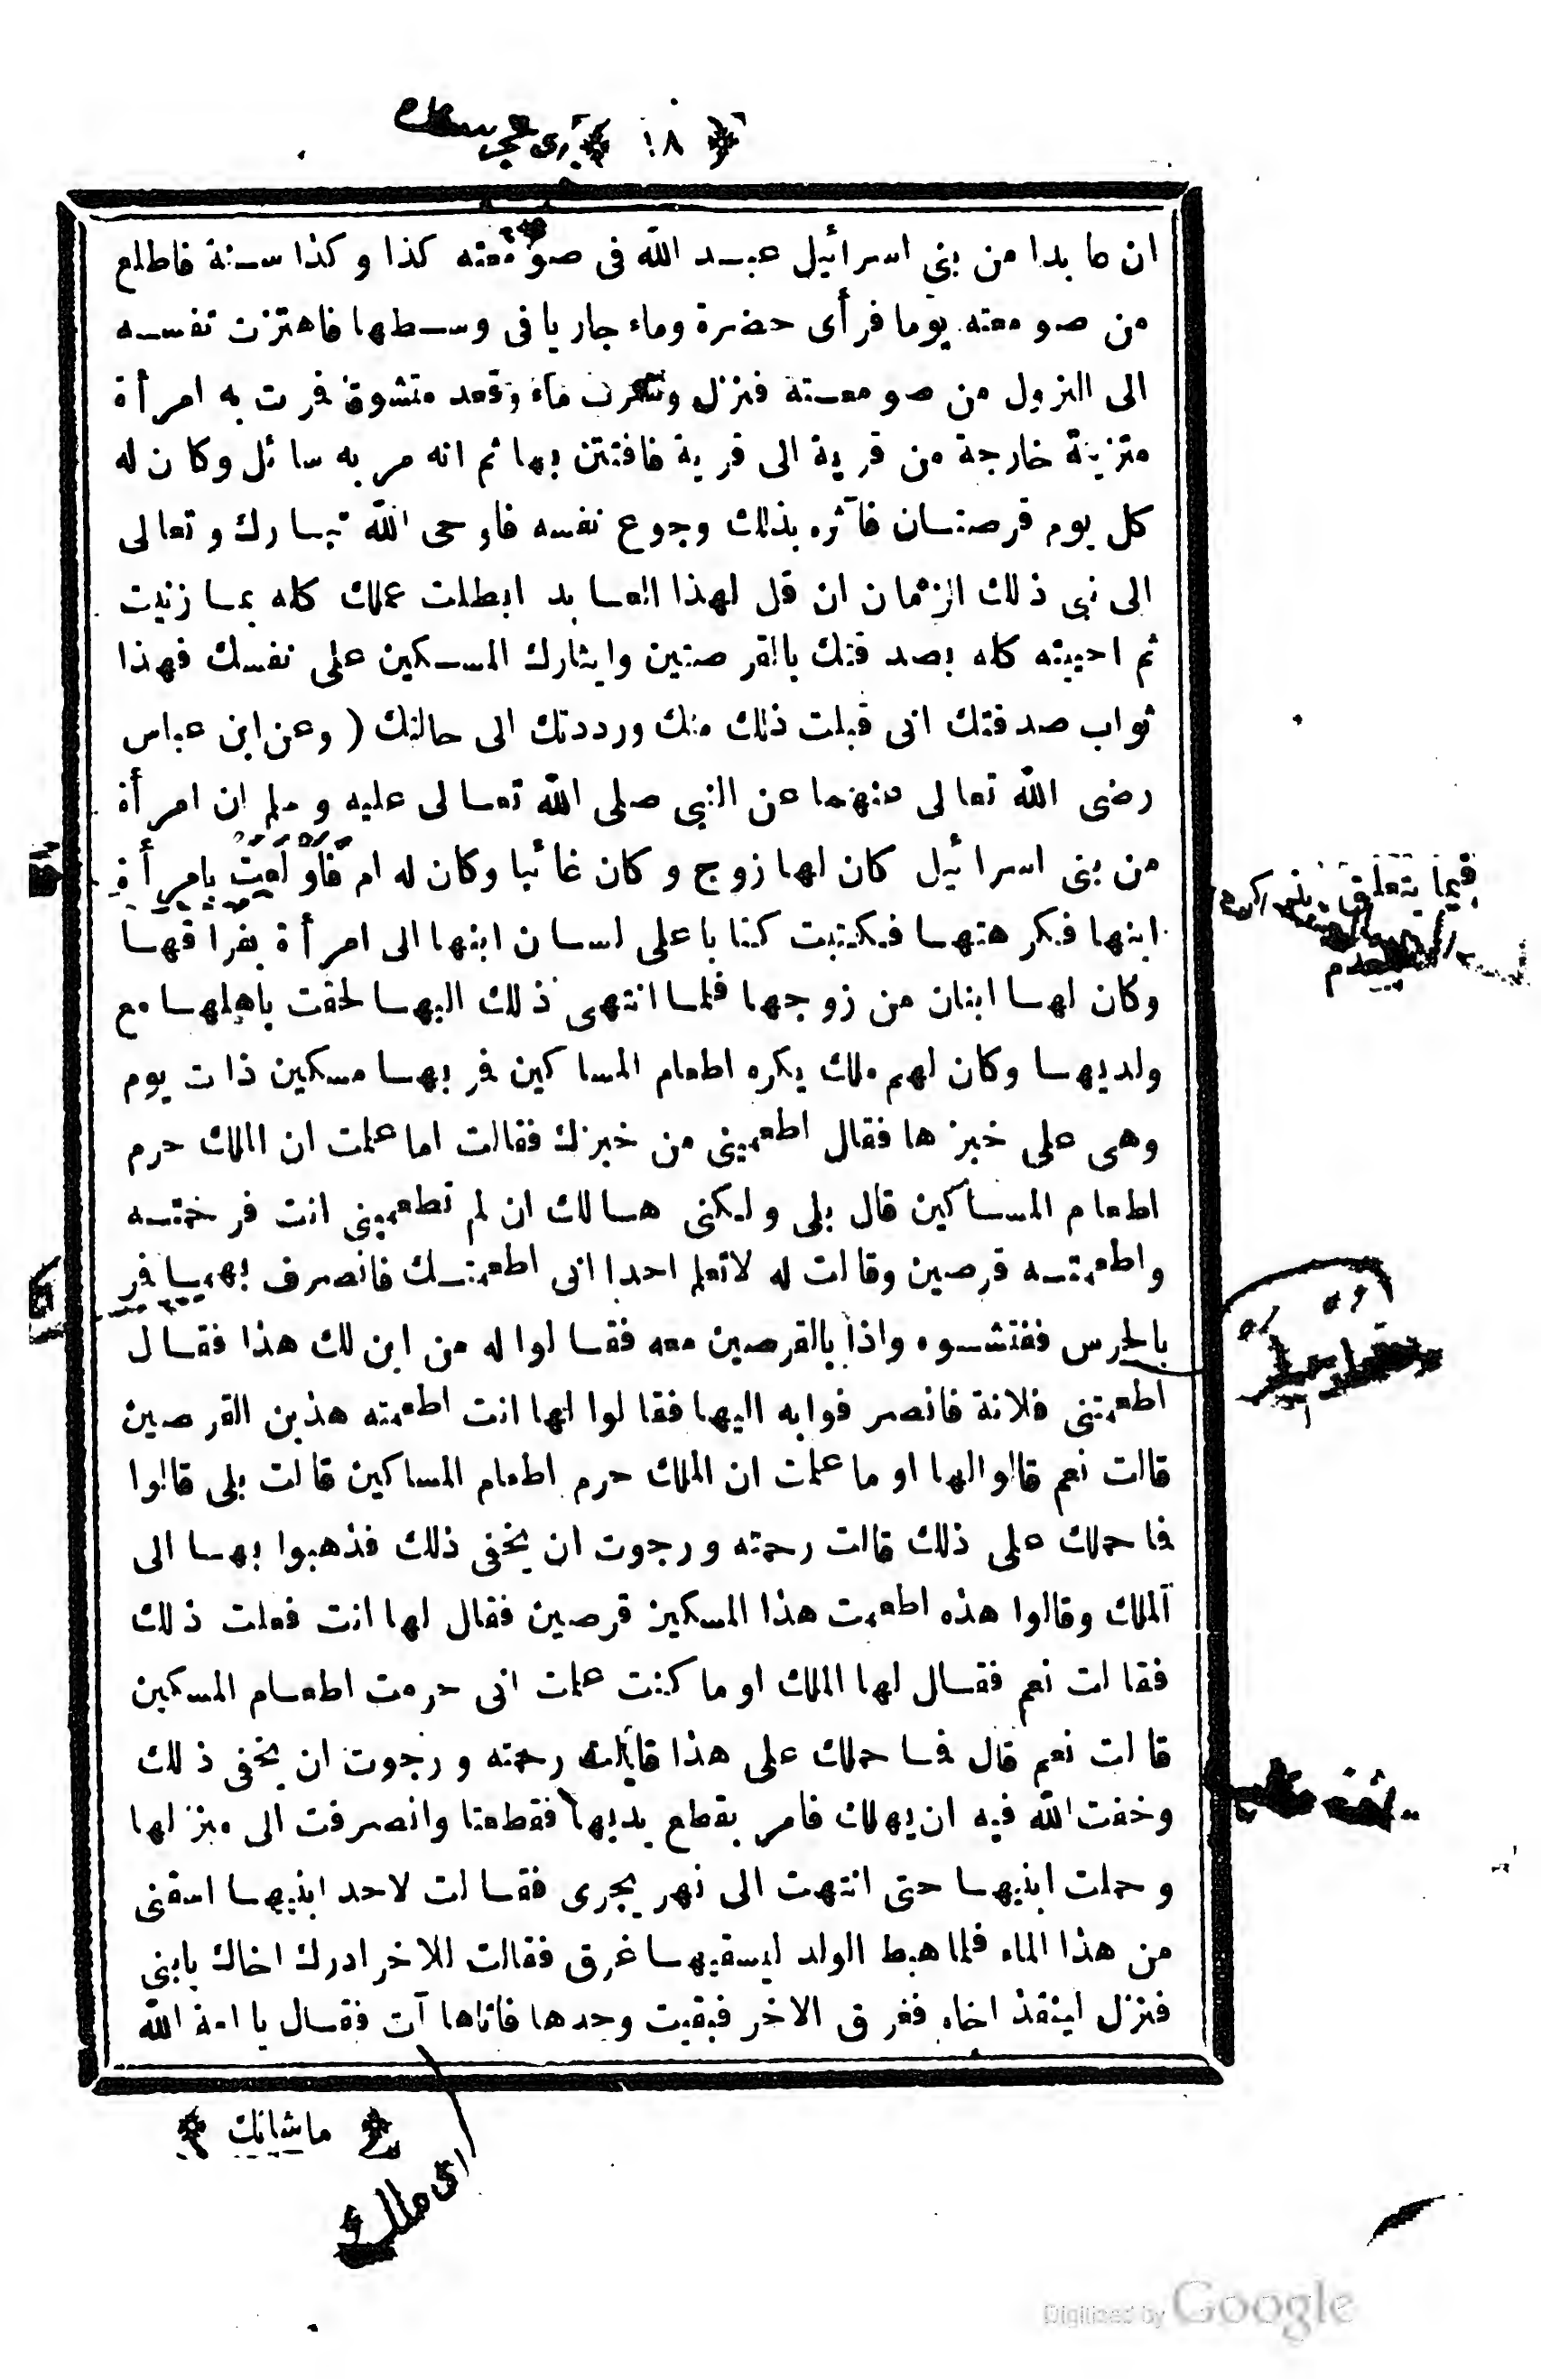 ﴿ ١٨ ﴾
ان عابدا من بنى اسرائيل عبد الله فى صومعته كذا وكذا سنة فاطلع
من صومعته يوما فرأى حضرة وماء جاريا فى وسطها فاهتزت نفسه
الى النزول من صومعته فنزل وقعد متشوقا فرت به امرأة
متزينة خارجة من قرية الى قرية فافتتن بها ثم انه مر به سائل وكان له
كل يوم قرصتان فآثره بذلك وجوع نفسه فاوحى الله تبارك وتعالى
الى نبى ذلك الزمان ان قل لهذا العابد ابطلت عملك كله بما زنيت
ثم احييته كله بصدقتك بالقرصتين وايثارك المسكين على نفسك فهذا
ثواب صدقتك انى قبلت ذلك منك ورددتك الى حالتك ( وعن ابن عباس
رضى الله تعالى عنهما عن النبى صلى الله تعالى عليه وسلم ان امرأة
من بنى اسرائيل كان لها زوج وكان غائبا وكان له ام فاولعت بامرأة
ابنها فكرهتها فكتبت كتابا على لسان ابنها الى امرأة بفراقها
وكان لها ابنان من زوجها فلما انتهى ذلك اليها لحقت باهلها مع
ولديها وكان لهم ملك يكره اطعام المساكين فر بها مسكين ذات يوم
وهى على خبزها فقال اطعمينى من خبزك فقالت اما علمت ان الملك حرم
اطعام المساكين قال بلى ولكنى هالك ان لم تطعمينى انت فرحمته
واطعمته قرصين وقالت له لاتعلم احدا انى اطعمتك فانصرف بهما فر
بالحرس ففتشوه واذا بالقرصين معه فقالوا له من اين لك هذا فقال
اطعمتنى فلانة فانصرفوا به اليها فقالوا لها انت اطعمته هذين القرصين
قالت نعم قالوا لها او ما علمت ان الملك حرم اطعام المساكين قالت بلى قالوا
فاحملك على ذلك قالت رحمته ورجوت ان يخفى ذلك فذهبوا بها الى
الملك وقالوا هذه اطعمت هذا المسكين قرصين فقال لها انت فعلت ذلك
فقالت نعم فقال لها الملك او ما كنت علمت انى حرمت اطعام المسكين
قالت نعم قال فما حملك على هذا قالت رحمته ورجوت ان يخفى ذلك
وخفت الله فيه ان يهلك فامر بقطع يديها فقطعتا وانصرفت الى منزلها
وحملت ابنيها حتى انتهت الى نهر يجرى فقالت لاحد ابنيها اسقنى
من هذا الماء فلما هبط الولد ليسقيها غرق فقالت للاخر ادرك اخاك يابنى
فنزل لينقذ اخاه فغرق الاخر فبقيت وحدها فاتاها آت فقال يا امة الله
فيما يتعلق
﴿ ماشانك ﴾
اى ملك
Digitized by Google